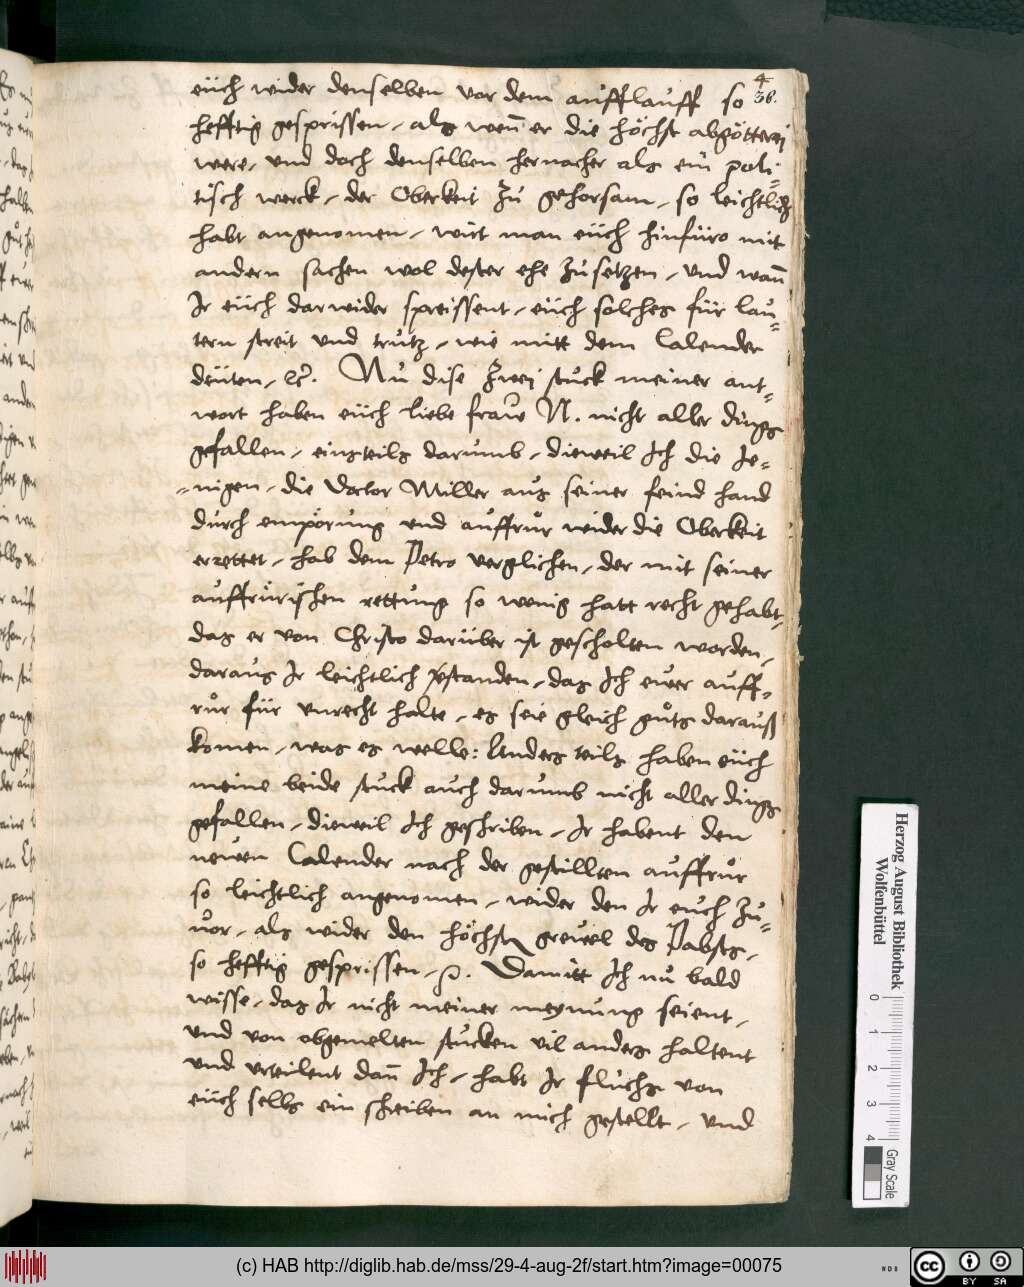 4
36.
eüch wider denselben vor dem aufflauff so
hefftig gesprissen, als wen̄ er die höchst abgötterei
were, und doch denselben hernacher als ein poli-
tisch werck, der Oberkeit zu gehorsam, so leichtlich
habt angenomen, wirt man eüch hinfüro mit
andern sachen wol dester ehe zusetzen, und wan̄
Ir eüch darwider spreissent, eüch solches für lau-
tern streit und trutz, wie mitt dem Calender
deüten, etc. Nu dise zwei stuck meiner ant-
wort haben eüch liebe fraw N. nicht aller dings
gefallen, eins teils darumb, dieweil Ich die Je-
nigen, die Doctor Miller aus seiner feind hand
durch empörung und auffrur wider die Oberkeit
errettet, hab dem Petro verglichen, der mit seiner
auffrürischen rettung so wenig hatt recht gehabt,
das er von Christo darüber ist gescholten worden,
daraus Ir leichtlich verstanden, das Ich ewer auff-
rur für unrecht halte, es seie gleich guts darauß
komen, was es welle: Anders teils haben eüch
meine beide stuck auch darumb nicht aller dings
gefallen, dieweil Ich geschriben, Ir habent den
newen Calender nach der gestillten auffrur
so leichtlich angenomen, wider den Ir euch zu-
vor, als wider den höchsten grewel des Pabsts,
so hefftig gesprissen, etc. Damitt Ich nu bald
wisse, das Ir nicht meiner meynung seient,
und von obgemelten stucken vil anders haltent
und urteilent dan̄ Ich, habt Ir fluchs von
eüch selbs ein schreiben an mich gestellt, und
Herzog August Bibliothek
Wolfenbüttel
0 1 2 3 4
Gray Scale
(c) HAB http://diglib.hab.de/mss/29-4-aug-2f/start.htm?image=00075
WDB
cc BY SA